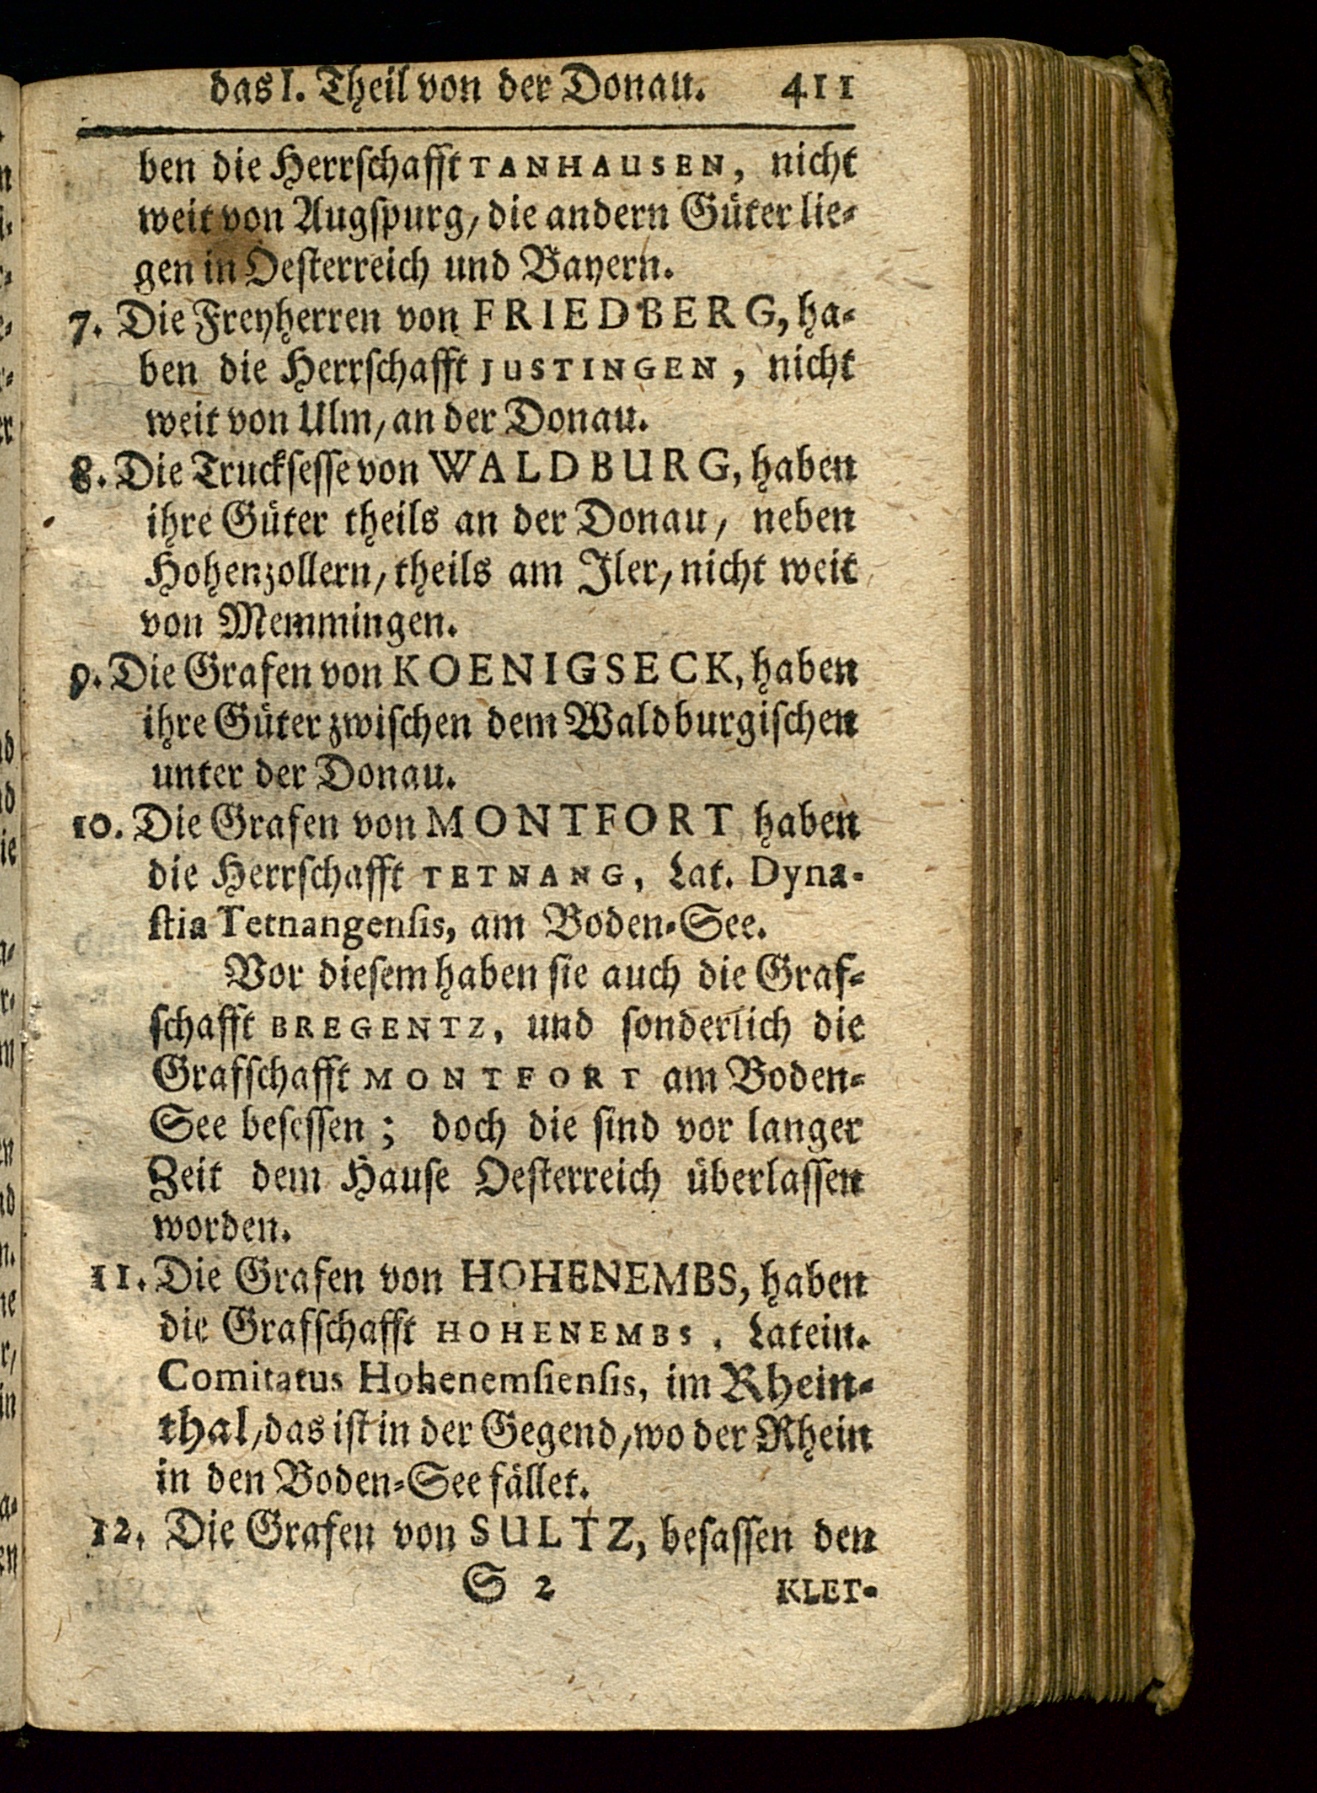 das I. Theil von der Donau. 411
ben die Herrschafft TANHAUSEN, nicht
weit von Augspurg, die andern Güter lie-
gen in Oesterreich und Bayern.
7. Die Freyherren von FRIEDBERG, ha-
ben die Herrschafft JUSTINGEN, nicht
weit von Ulm, an der Donau.
8. Die Trucksesse von WALDBURG, haben
ihre Güter theils an der Donau, neben
Hohenzollern, theils am Iler, nicht weit
von Memmingen.
9. Die Grafen von KOENIGSECK, haben
ihre Güter zwischen dem Waldburgischen
unter der Donau.
10. Die Grafen von MONTFORT haben
die Herrschafft TETNANG, Lat. Dyna-
stia Tetnangensis, am Boden-See.
Vor diesem haben sie auch die Graf-
schafft BREGENTZ, und sonderlich die
Grafschafft MONTFORT am Boden-
See besessen; doch die sind vor langer
Zeit dem Hause Oesterreich überlassen
worden.
11. Die Grafen von HOHENEMBS, haben
die Grafschafft HOHENEMBS, Latein.
Comitatus Hohenemsiensis, im Rhein-
thal, das ist in der Gegend, wo der Rhein
in den Boden-See fället.
12. Die Grafen von SULTZ, besassen den
S 2 KLET-